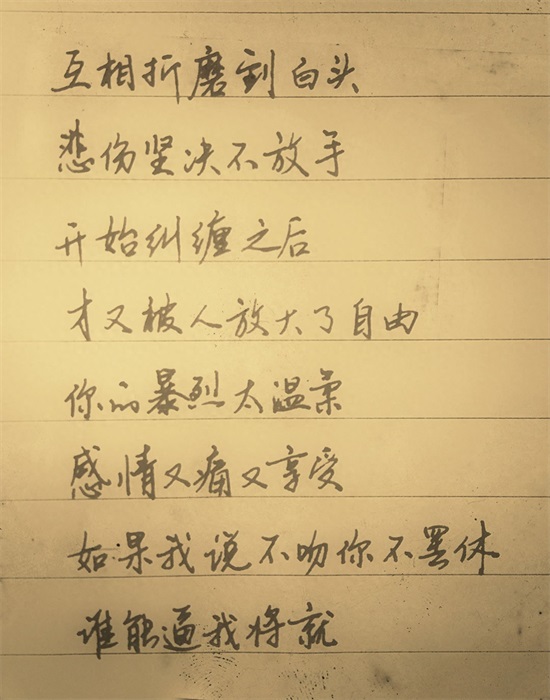 互相折磨到白头
悲伤坚决不放手
开始纠缠之后
才又被人放大了自由
你的暴烈太温柔
感情又痛又享受
如果我说不吻你不罢休
谁能逼我将就